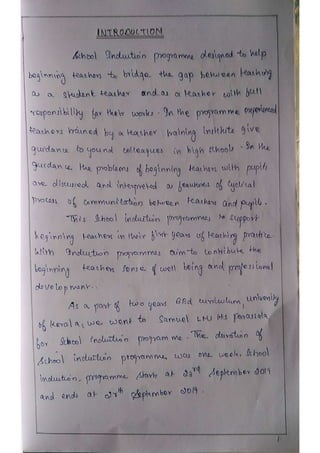 INTRODUCTION
School Induction programme designed to help
beginning teachers to bridge the gap between teaching
as a student teacher and as a teacher with full
responsibility for their works. In the programme experienced
teachers trained by a teacher training institute give
guidance to yound colleagues in high schools. In the
guidance the problems of beginning teachers with pupils
are discussed and interpreted as features of cyclical
process of communication between teachers and pupils.
This School induction programmes to support
beginning teachers in their first years of teaching practice
With Induction programmes aim to contribute the
beginning teachers sense of well being and professional
development.
As a part of two years BEd curriculum, university
of Kerala, we went to Samuel LMS HS Parassala,
for School Induction programme. The duration of
School induction programme, was one week. School
induction, programme starts at 23rd September 2019
and ends at 27th September 2019.
1